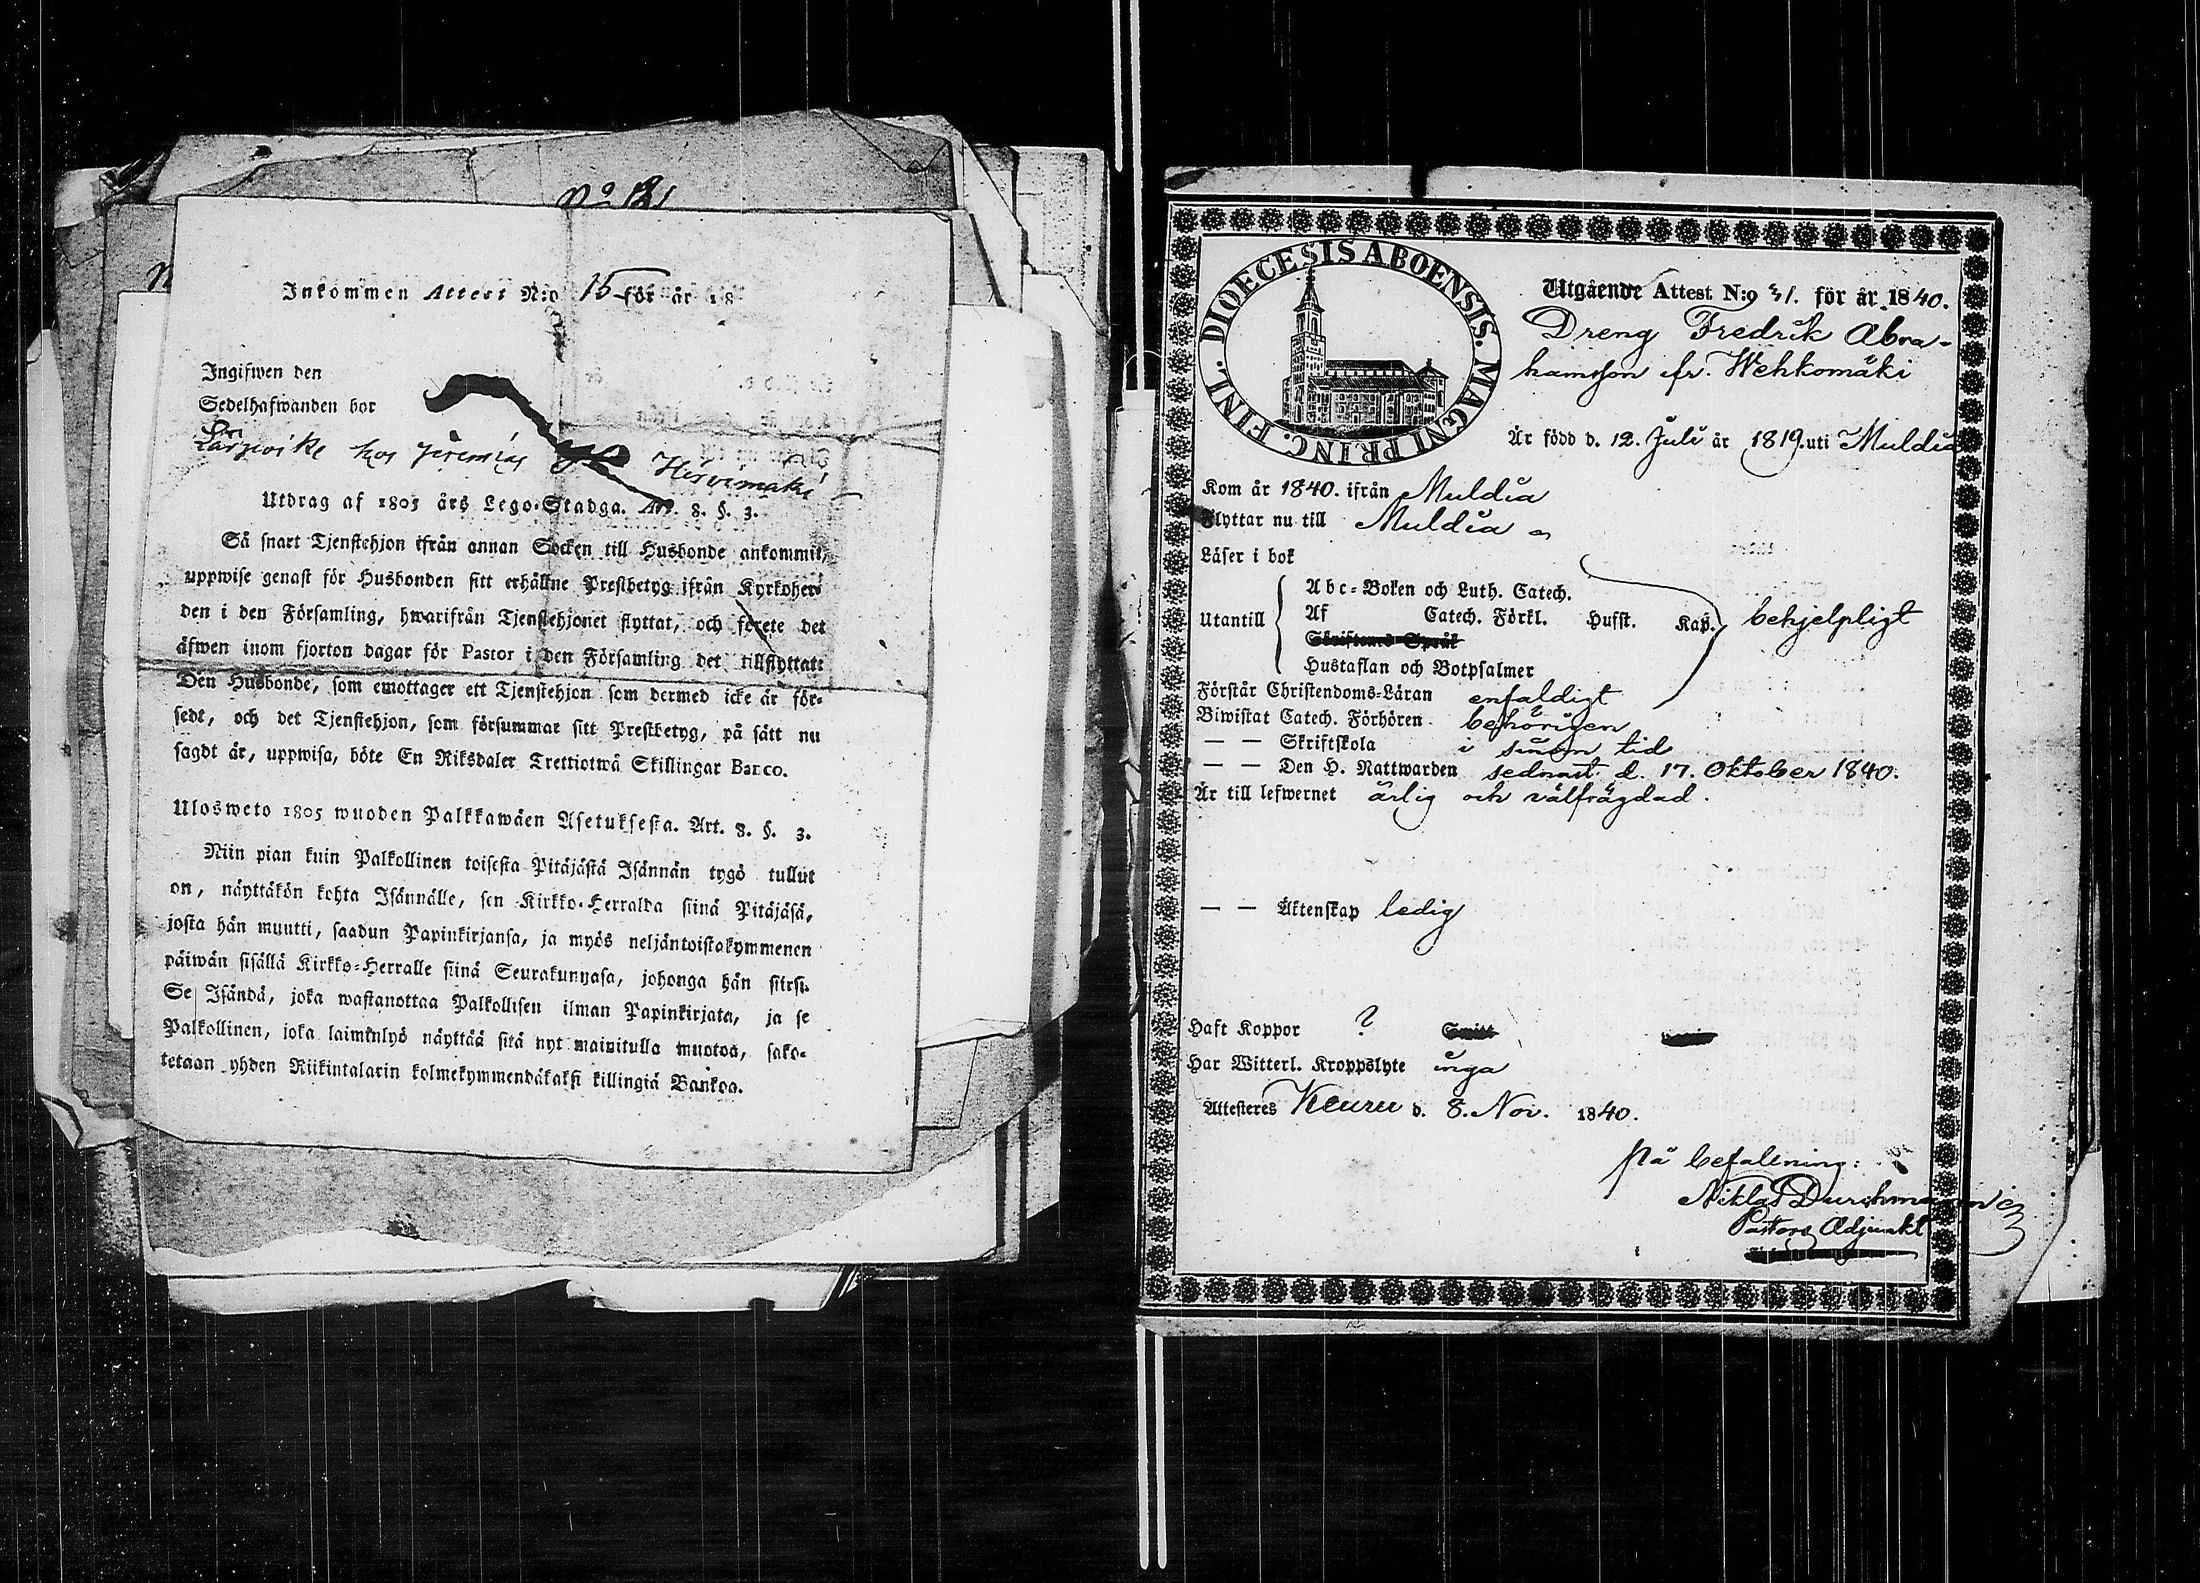 No 121
Inkommen Attest N:o 15 för år 18
Ingifwen den
Sedelhafwanden bor
hos Jeremias Hirvimäki
Utdrag af 1805 års Lego-Stadga. Art. 8. §. 3.
Så snart Tjenstehjon ifrån annan Socken till Husbonde ankommit,
uppwise genast för Husbonden sitt erhållne Prestbetyg ifrån Kyrkoher-
den i den Församling, hwarifrån Tjenstehjonet flyttat, och förete det
äfwen inom fjorton dagar för Pastor i den Församling det tillflyttat:
Den Husbonde, som emottager ett Tjenstehjon som dermed icke är för-
sedt, och det Tjenstehjon, som försummar sitt Prestbetyg, på sätt nu
sagdt är, uppwisa, böte En Riksdaler Trettiotwå Skillingar Banco.
Ulosweto 1805 wuoden Palkkawäen Asetuksesta. Art. 8. §. 3.
Niin pian kuin Palkollinen toisesta Pitäjästä Isännän tygö tullut
on, näyttäkön kohta Isännälle, sen Kirkko-Herralda siinä Pitäjäsä,
josta hän muutti, saadun Papinkirjansa, ja myös neljäntoistakymmenen
päiwän sisällä Kirkko-Herralle siinä Seurakunnasa, johonga hän siirsi.
Se Isändä, joka wastanottaa Palkollisen ilman Papinkirjata, ja se
Palkollinen, joka laiminlyö näyttää sitä nyt mainitulla muotoa, sako-
tetaan yhden Riikintalarin kolmekymmendäkaksi killingiä Bankoa.
DIOECESIS ABOENSIS. MAGNI PRINC. FINL.
Utgående Attest N:o 31. för år 1840.
Dreng Fredrik Abra-
hamsson fr. Wehkomäki
Är född d. 12. Juli år 1819. uti Muldia
Kom år 1840. ifrån Muldia
Flyttar nu till Muldia
Läser i bok
Abc-Boken och Luth. Catech.
Utantill Af Catech. Förkl. Husst. Kap. behjelpligt
Skriftenes Språk
Hustaflan och Botpsalmer
Förstår Christendoms-Läran enfaldigt
Biwistat Catech. Förhören behörigen
— — Skriftskola i sinom tid
— — Den H. Nattwarden sednast d. 17. Oktober 1840.
Är till lefwernet ärlig och välfrägdad.
— — Äktenskap ledig
Haft Koppor ?
Har Witterl. Kroppslyte inga
Attesteres Keuru d. 8. Nov. 1840.
På befallning:
Niklas
Pastors Adjunkt